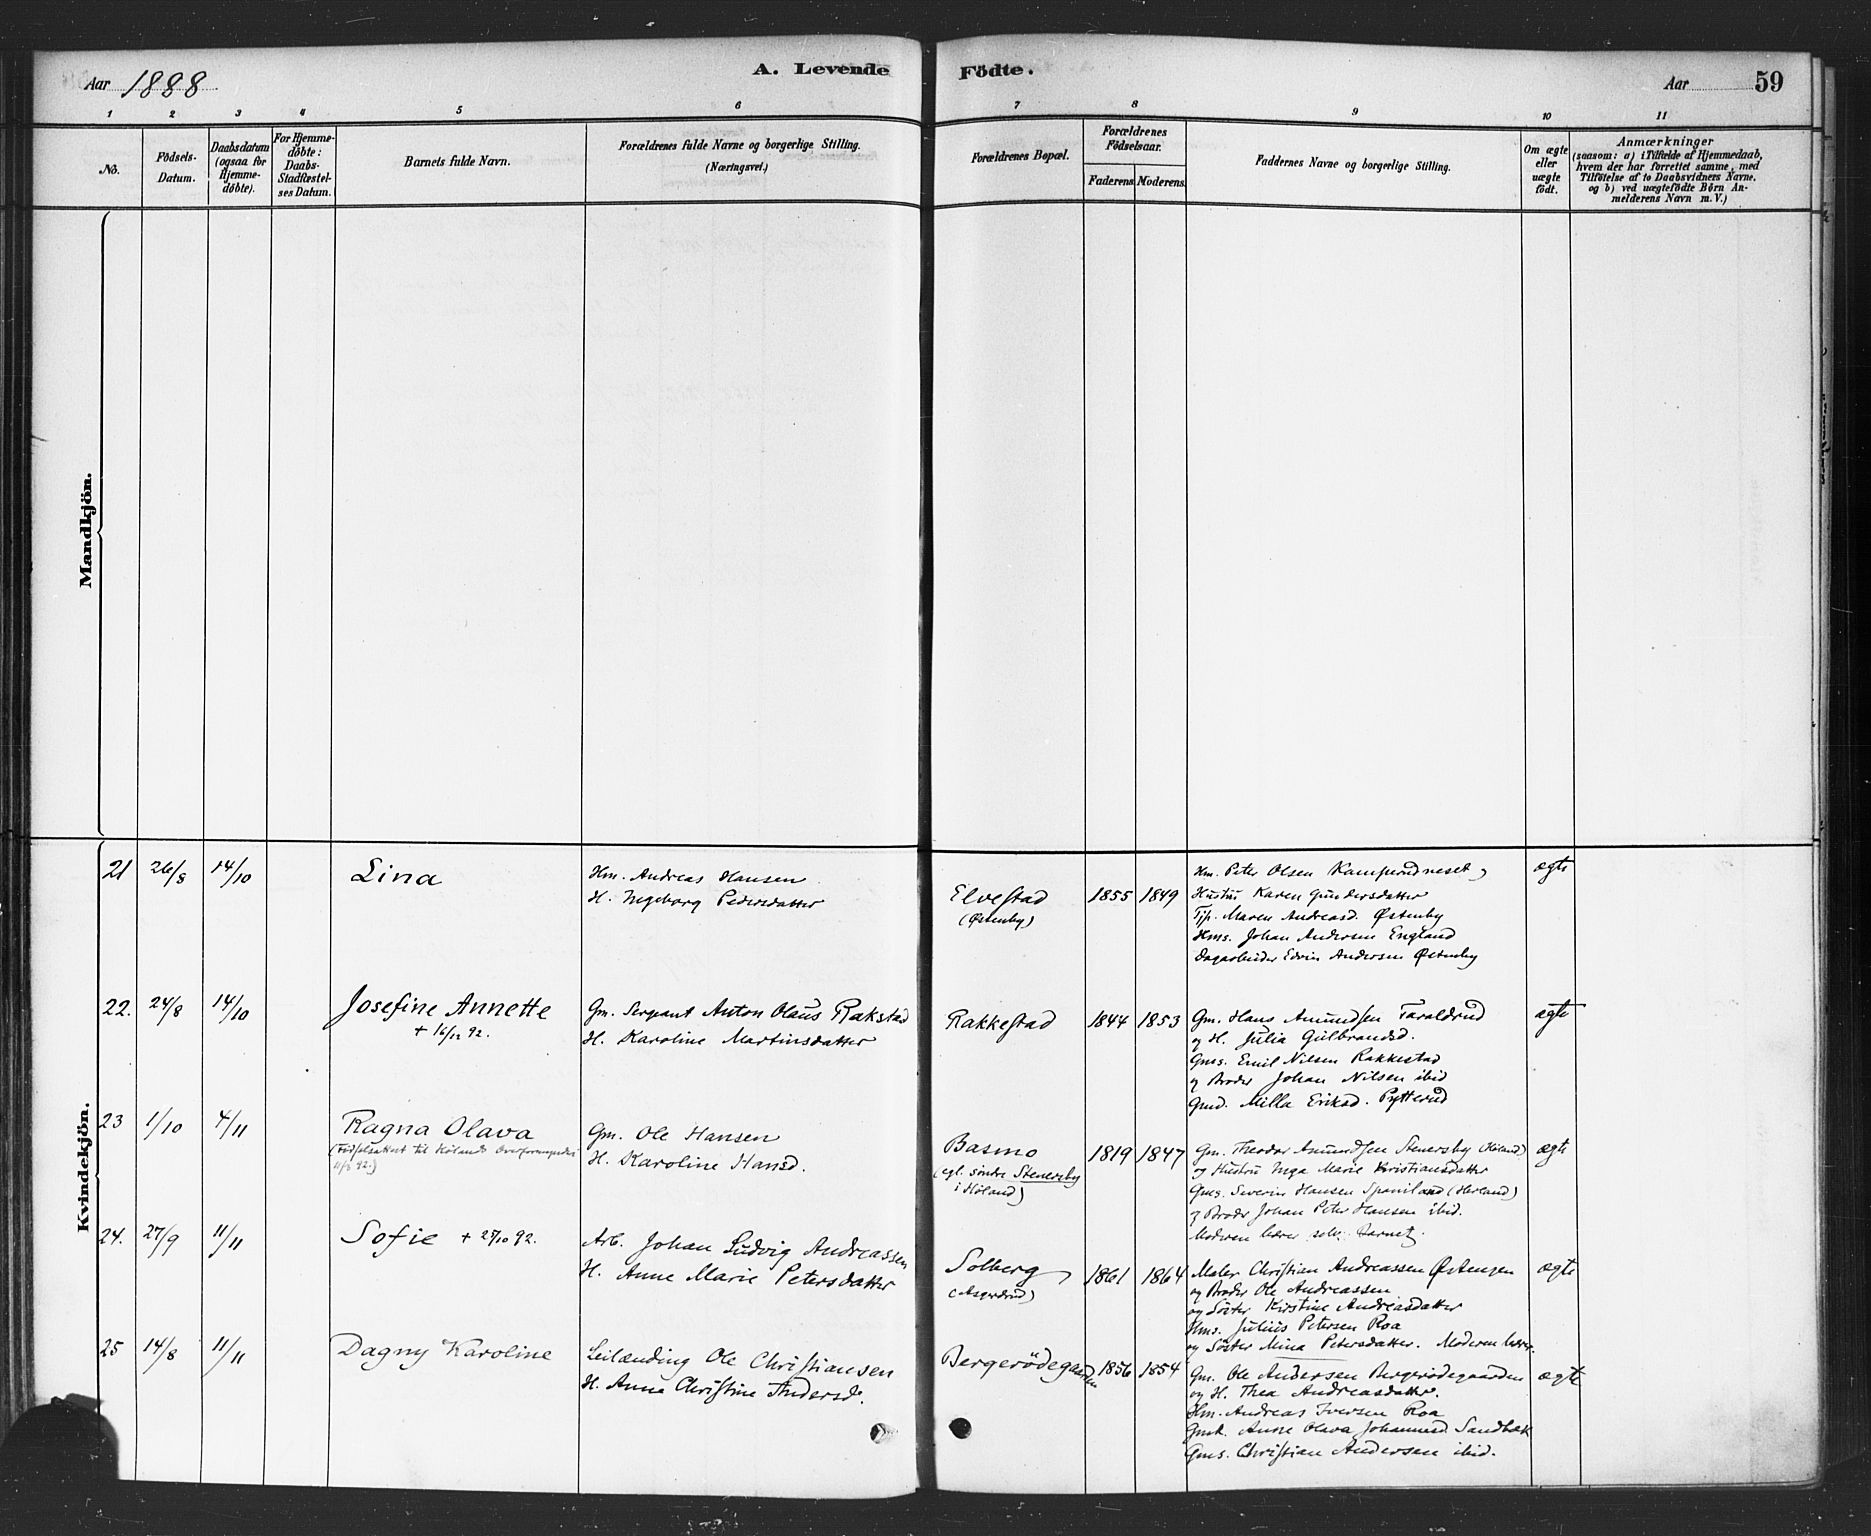 Aar 1888
A. Levende Födte.
Aar 59
1 2 3 4 5 6 7 8 9 10 11
No.
Födsels-Datum.
Daabsdatum (ogsaa for Hjemme-döbte).
For Hjemme-döbte: Daabs-Stadfæstel-ses Datum.
Barnets fulde Navn.
Forældrenes fulde Navne og borgerlige Stilling.
(Næringsvei.)
Forældrenes Bopæl.
Forældrenes Födselsaar.
Faderens. Moderens.
Faddernes Navne og borgerlige Stilling.
Om ægte eller uægte födt.
Anmærkninger
(saasom: a) i Tilfælde af Hjemmedaab,
hvem der har forrettet samme, med
Tilföielse af to Daabsvidners Navne,
og b) ved uægtefödte Börn An-
melderens Navn m. V.)
Mandkjön.
Kvindekjön.
21 26/8 14/10 Lina
Hm. Andreas Hansen
H. Ingeborg Pedersdatter
Elvestad
(Østenby)
1855 1849
Hm. Peter Olsen Kamperudneset,
Hustru Karen Gundersdatter
Tjp. Maren Andreasd. Østenby
Hms. Johan Andersen England
Dagarbeider Edvin Andersen Østenby
ægte
22. 24/8 14/10 Josefine Annette
+ 16/12 92.
Gm. Sergeant Anton Olaus Rakstad
H. Karoline Martinsdatter
Rakkestad
1844 1853
Gm. Hans Amundsen Taraldrud
og H. Julia Gulbrandsd.
Gms. Emil Nilsen Rakkestad
og Broder Johan Nilsen ibid
Gmd. Milla Eriksd. Pytterud
ægte
23 1/10 4/11 Ragna Olava
Gm. Ole Hansen
H. Karoline Hansd.
Basmo
(egl. söndre Stenersby
i Höland)
1819 1847
Gm. Theodor Amundsen Stenersby (Höland)
og Hustru Inga Marie Kristiansdatter
Gms. Severin Hansen Spaniland (Herland)
og Broder Johan Peter Hansen ibid.
Moderen bærer selv Barnet.
ægte
24. 27/9 11/11 Sofie + 27/10 92.
Arb. Johan Ludvig Andreassen
H. Anne Marie Petersdatter
Solberg
1861 1864
Maler Christian Andreassen Østengen
og Broder Ole Andreassen
og Söster Kirstine Andreasdatter
Hms. Julius Petersen Roa
og Söster Mina Petersdatter. Moderen bærer.
ægte
25 14/8 11/11 Dagny Karoline
Leilænding Ole Christiansen
H. Anne Christine Andersd.
Bergerödegaarden
1856 1854
Gm. Ole Andersen Bergerödegaarden
og H. Thea Andreasdatter.
Hm. Andreas Iversen Roa
Gmk. Anne Olava Johannesd. Sandbæk
Gms. Christian Andersen ibid.
ægte